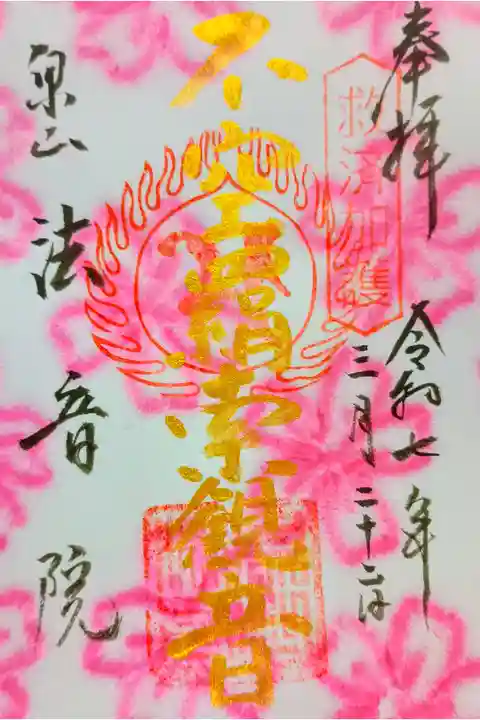 奉拝
救済加護
令和七年
三月二十六日
不空羂索観音
泉山
法音院